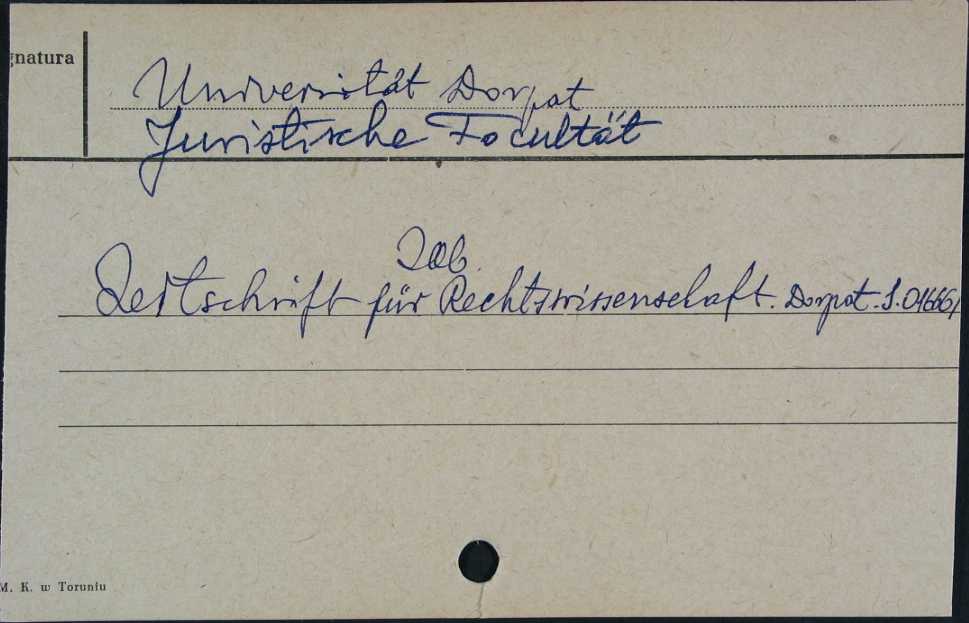 gnatura
Universität Dorpat
Juristische Facultät
Zob.
Zeitschrift für Rechtswissenschaft. Dorpat. S.01666/
M. K. w Toruniu